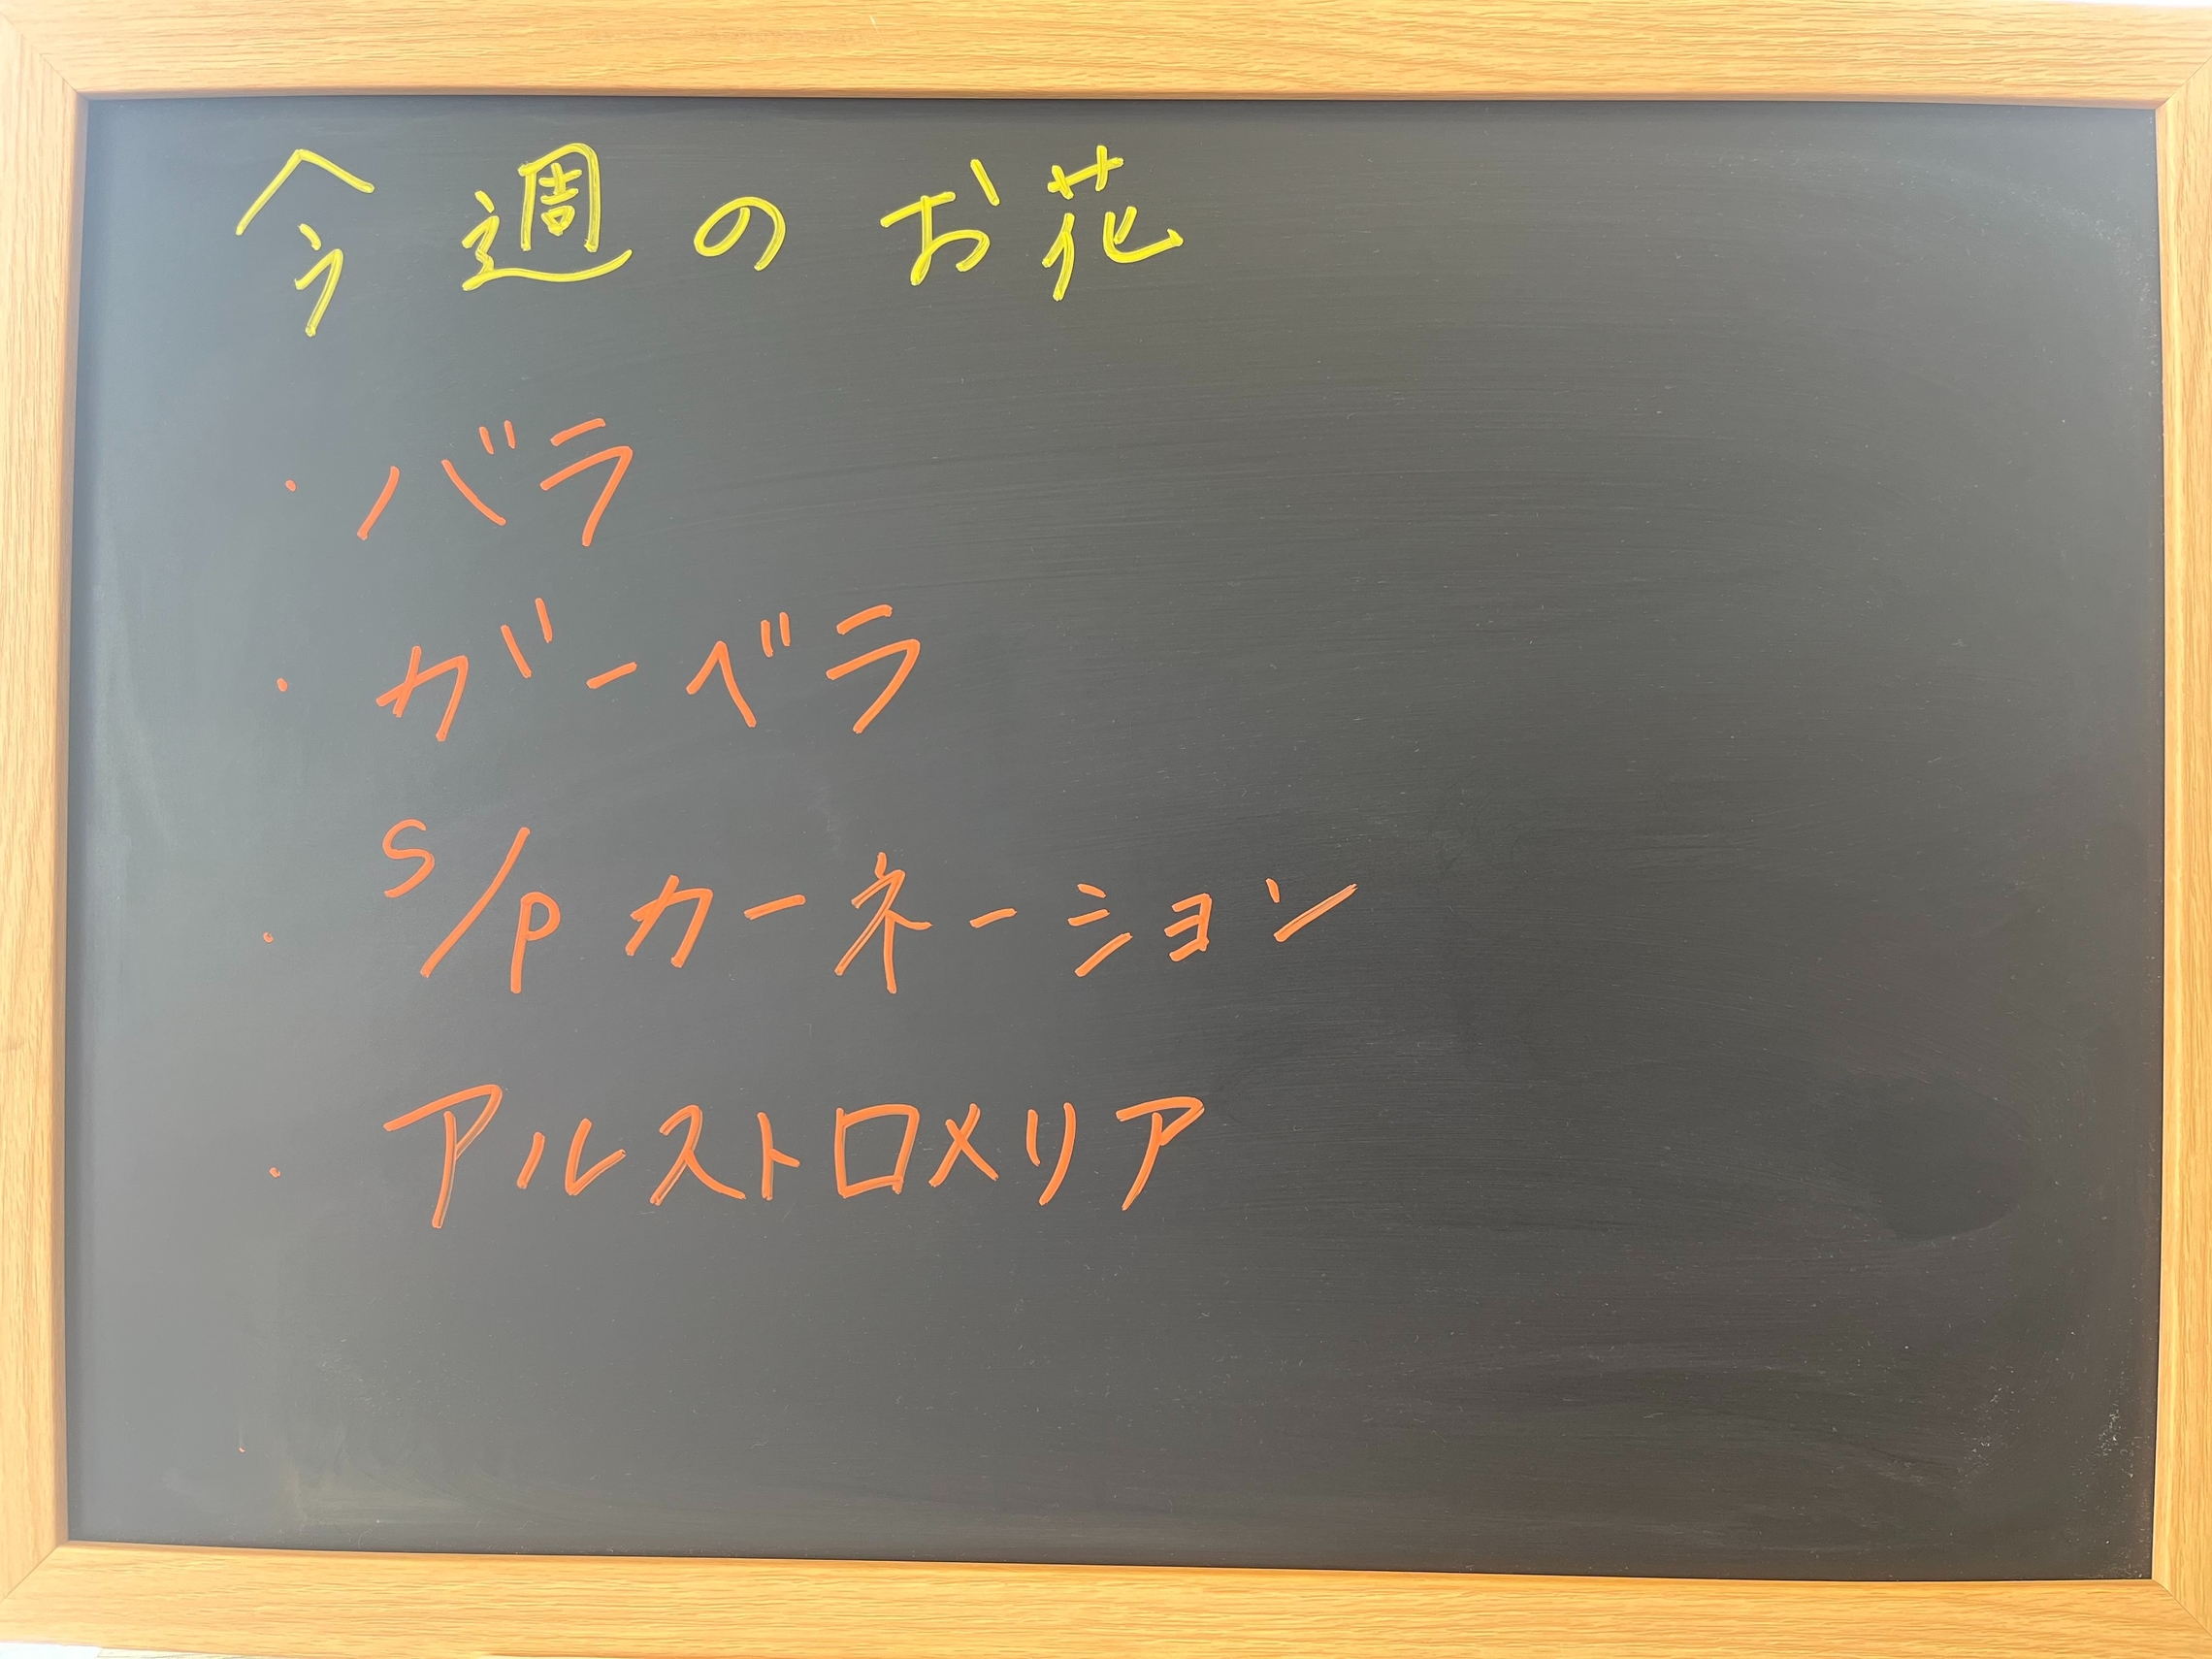 今週のお花
・バラ
・ガーベラ
・S/Pカーネーション
・アルストロメリア